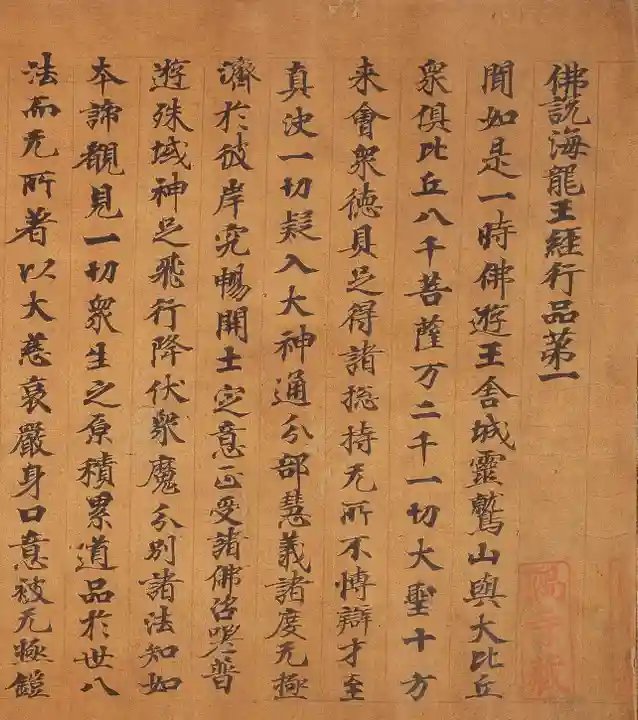 佛説海龍王經行品第一
聞如是一時佛遊王舎城靈鷲山與大比丘
衆俱比丘八千菩薩万二千一切大聖十方
来會衆徳具足得諸揔持无所不愽辯才至
真决一切疑入大神通分部慧義諸度无極
濟於彼岸究暢開士定意正受諸佛咨嗟普
遊殊域神足飛行降伏衆魔分别諸法知如
夲諦觀見一切衆生之原積累道品於世八
法而无所著以大慈哀嚴身口意被无極鎧